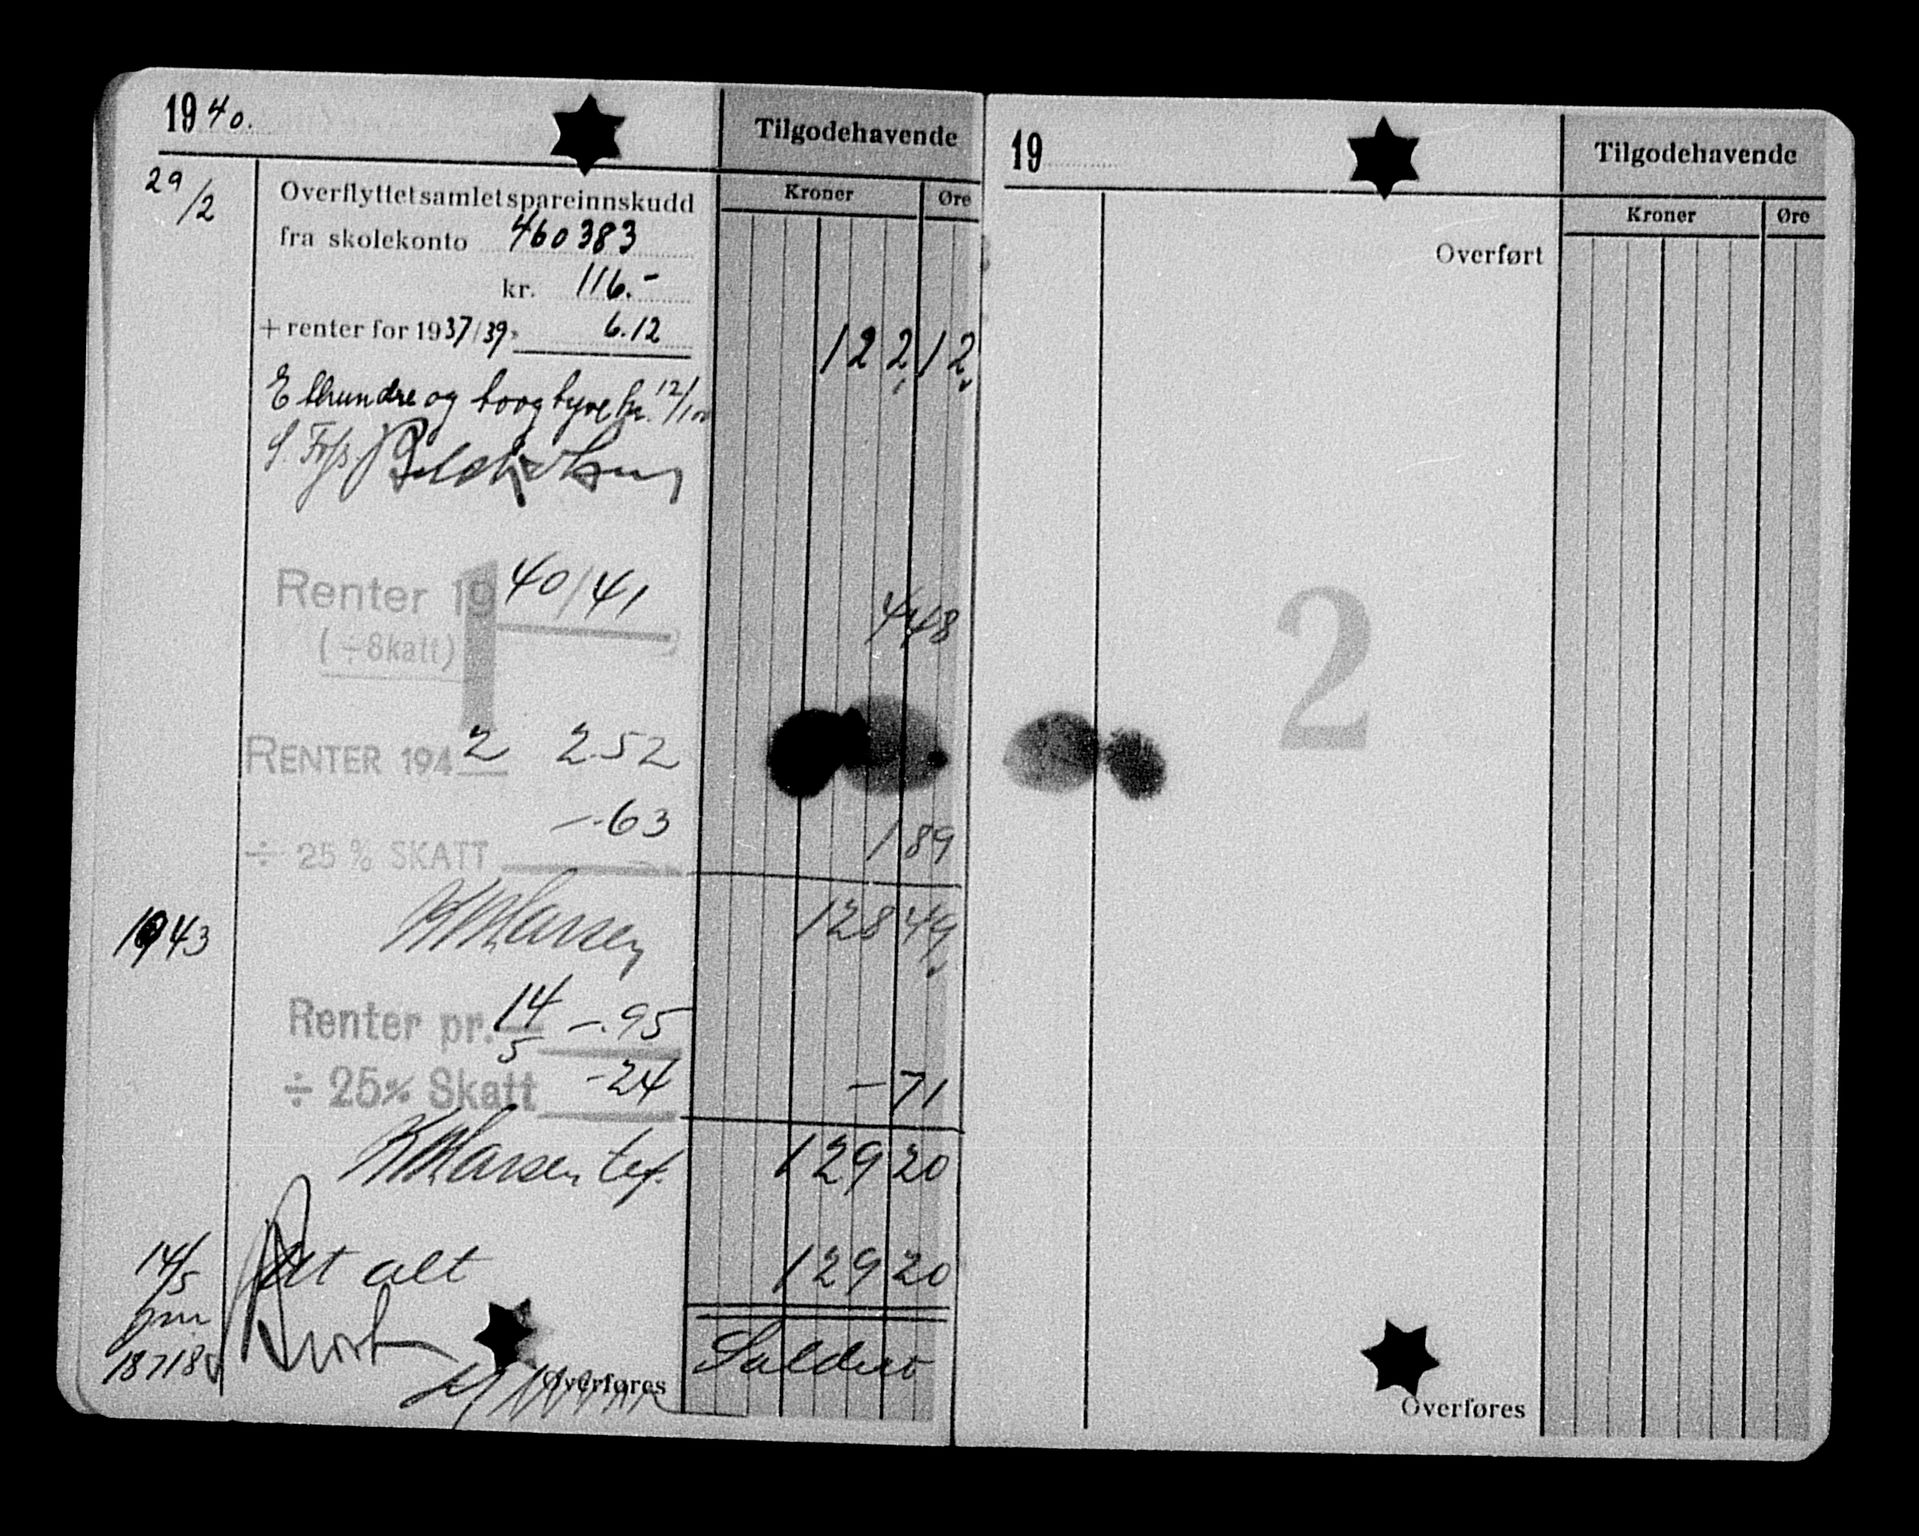 1940.
Tilgodehavende
Kroner Øre
29/2
Overflyttet samlet spareinnskudd
fra skolekonto 460383
kr. 116.-
+ renter for 1937/39 6.12 122 12
Etthundre og toogtyve kr. 12/100
Renter 1940/41 4 48
(÷ Skatt)
1
RENTER 1942 2.52
-.63
÷ 25 % SKATT 1 89
128 49
1943
Renter pr. 14/5 -.95
÷ 25% Skatt -24 - 71
129 20
14/5 alt 129 20
Saldert
187185
Overføres
19
Tilgodehavende
Kroner Øre
Overført
2
Overføres